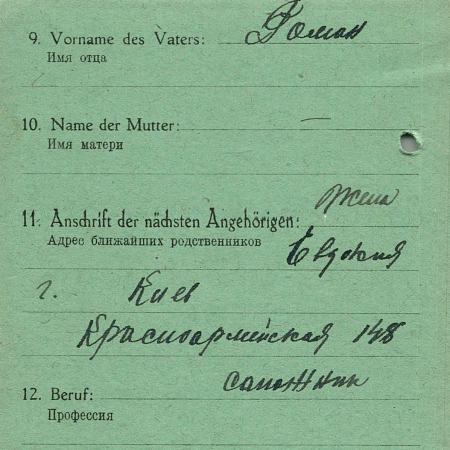 9. Vorname des Vaters: Роман
Имя отца
10. Name der Mutter: —
Имя матери
жена
11. Anschrift der nächsten Angehörigen:
Адрес ближайших родственников
Евдокия
г. Киев
Красноармейская 148
сапожник
12. Beruf:
Профессия